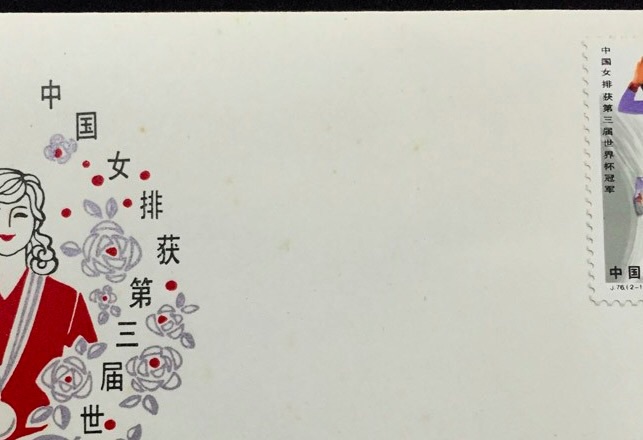 中国女排获第三届世
中国女排获第三届世界杯冠军
中国
J.76.(2-1